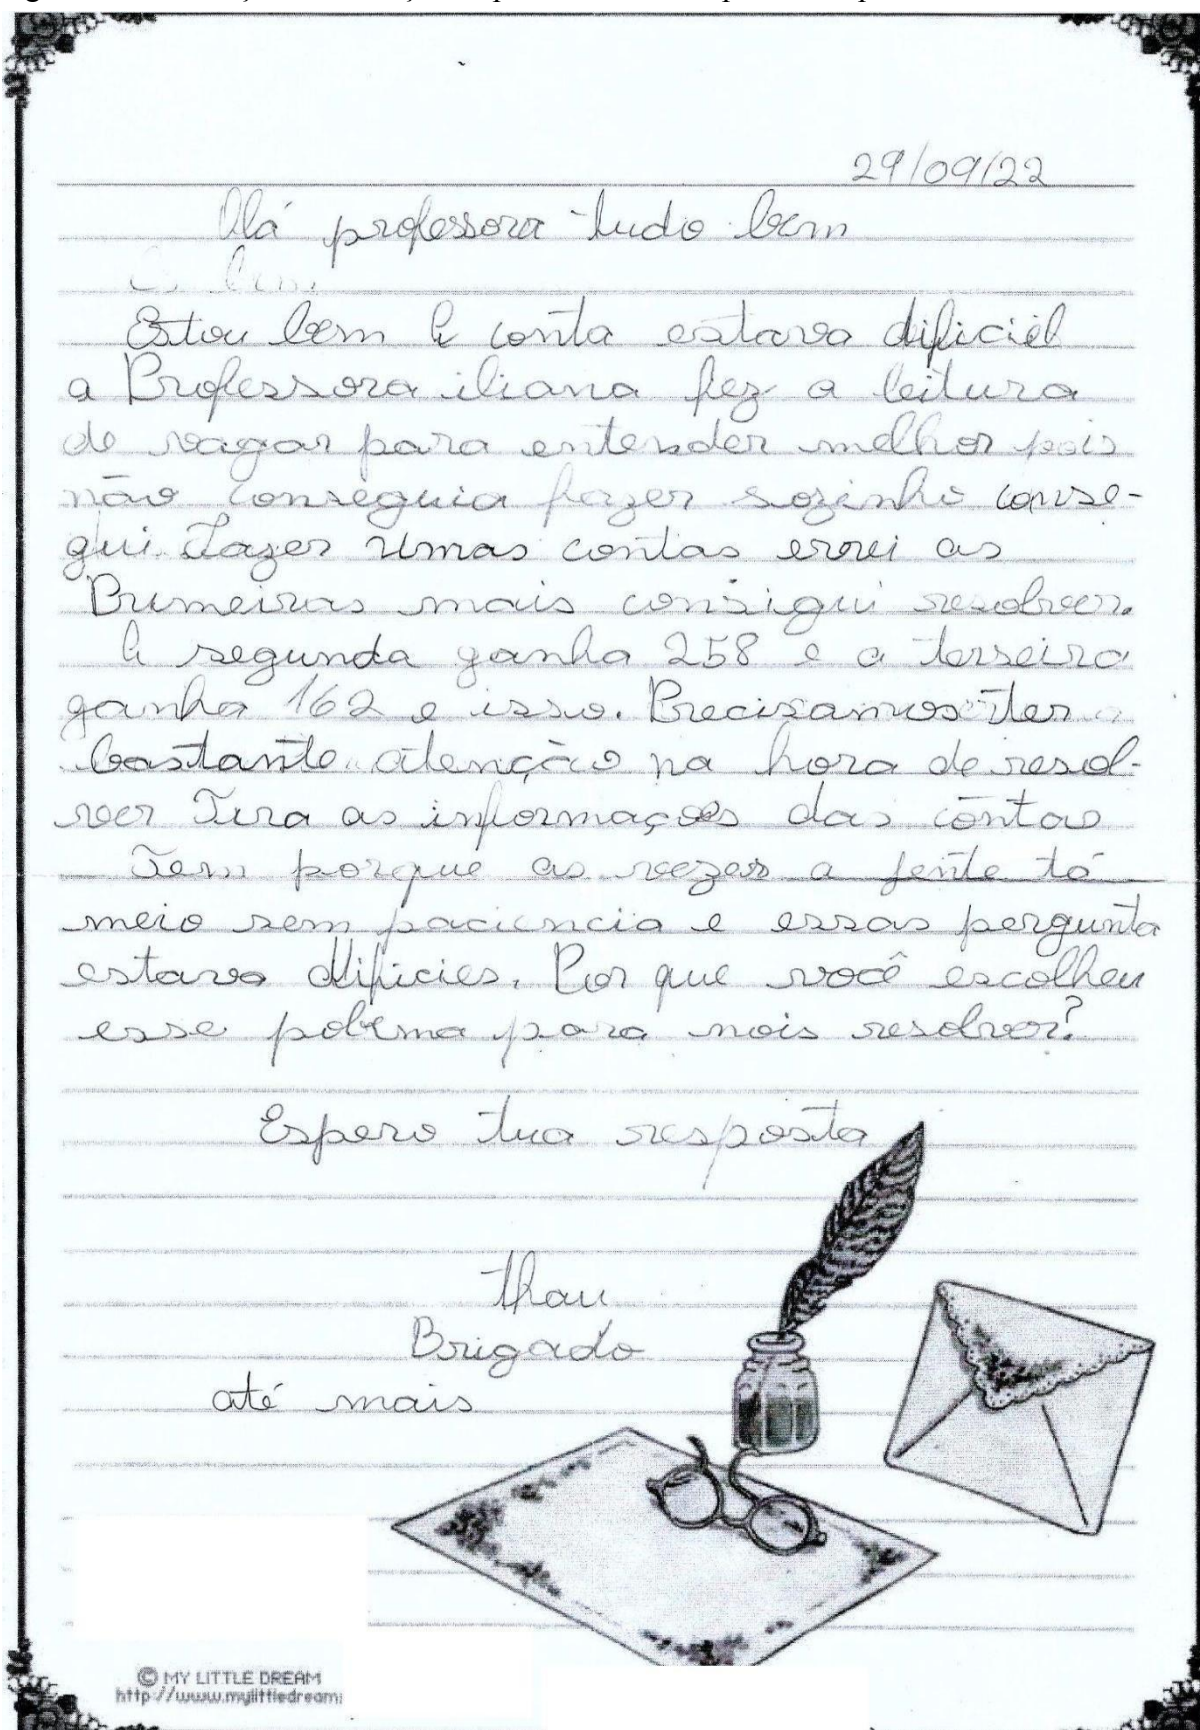 29/09/22
Olá professora tudo bem
Estou bem A conta estava dificiel
a Professora iliana fez a leitura
de vagar para entender melhor pois
não conseguia fazer sozinho conse-
gui. Fazer umas contas errei as
Primeiras mais consigui resolver.
A segunda ganha 258 e a terseira
ganha 162 e isso. Precisamos ter
bastante atenção na hora de resol-
ver Tira as informações das contas
Tem porque as vezes a jente tá
meio sem paciencia e essas pergunta
estava dificies. Por que você escolheu
esse poblema para nois resolver?
Espero tua resposta
thau
Brigado
até mais
© MY LITTLE DREAM
http://www.mylittledream